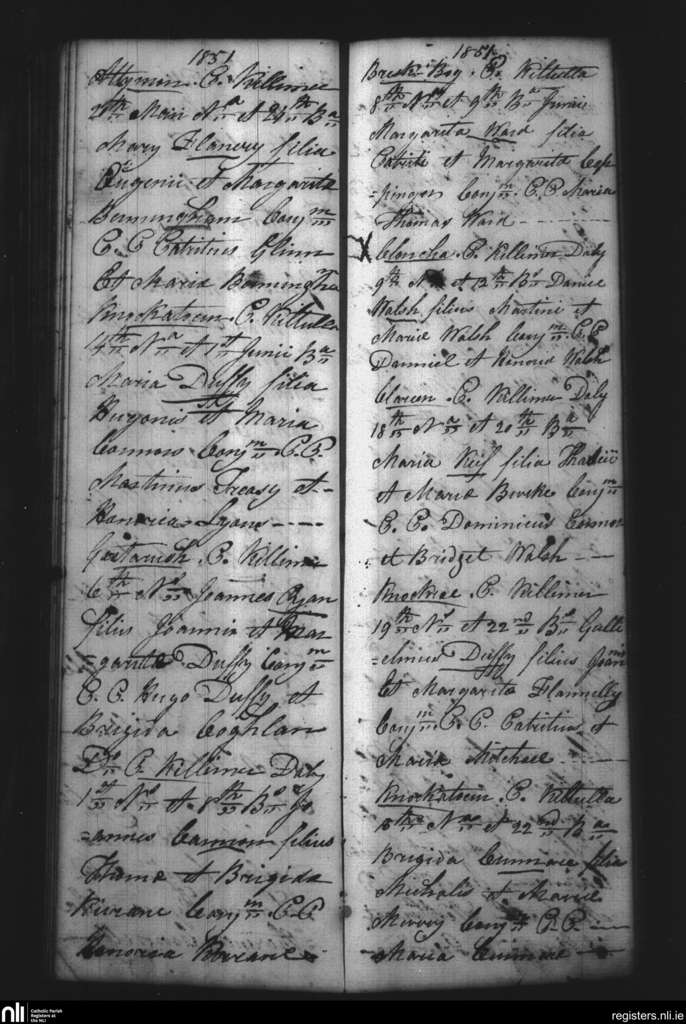 1851
Attymon. P. Killimer
20th Maii Na et 26th Ba
Mary Flanery filia
Eugenii et Margarita
Bermingham Conj m
C. C. Patritius Glinn
Et Maria Bermingham
Knockatoeen. P. Killulla
14th Na et 1st Junii Ba
Maria Duffy filia
Hugonis et Maria
Connors Conj m C. C.
Martinus Treasy et
Honoria Lyons
P. Killimer
6th No Joannes Ryan
filius Joannis et Mar
=garita Duffy Conj m
C. C. Hugo Duffy et
Brigida Coghlan
Do P. Killimer Daly
1st No et 8th Bo Jo
=annes Cannon filius
Thoma et Brigida
Kivrane Conj m C. C.
Honoria
1851
P. Kiltulla
8th Na et 9th Ba Junii
Margarita Ward filia
Patritii et Margarita Cop
=pinger Conj m. C. C. Maria
Thomas Ward
X Cloncha. P. Killimer Daly
9th No et 12th Bo Daniel
Walsh filius Martini et
Maria Walsh Conj m. C. C.
Danniel et Honoria Walsh
Clareen. P. Killimer Daly
18th Na et 20th Ba
Maria Keif filia
et Maria Burke Conj m
C. C. Dominicus Connor
et Bridget Walsh
Knockroe. P. Killimer
19th No et 22nd Bo Gulli
=elmius Duffy filius Joan
Et Margarita Flannelly
Conj m C. C. Patritius et
Maria Mitchael
Knockatoeen. P. Kiltulla
Na et 22nd Ba
Brigida Cunnane filia
Michalis et Maria
Morroy Conj m C. C.
Maria Cunnane
nli
Catholic Parish
Registers at
the NLI
registers.nli.ie